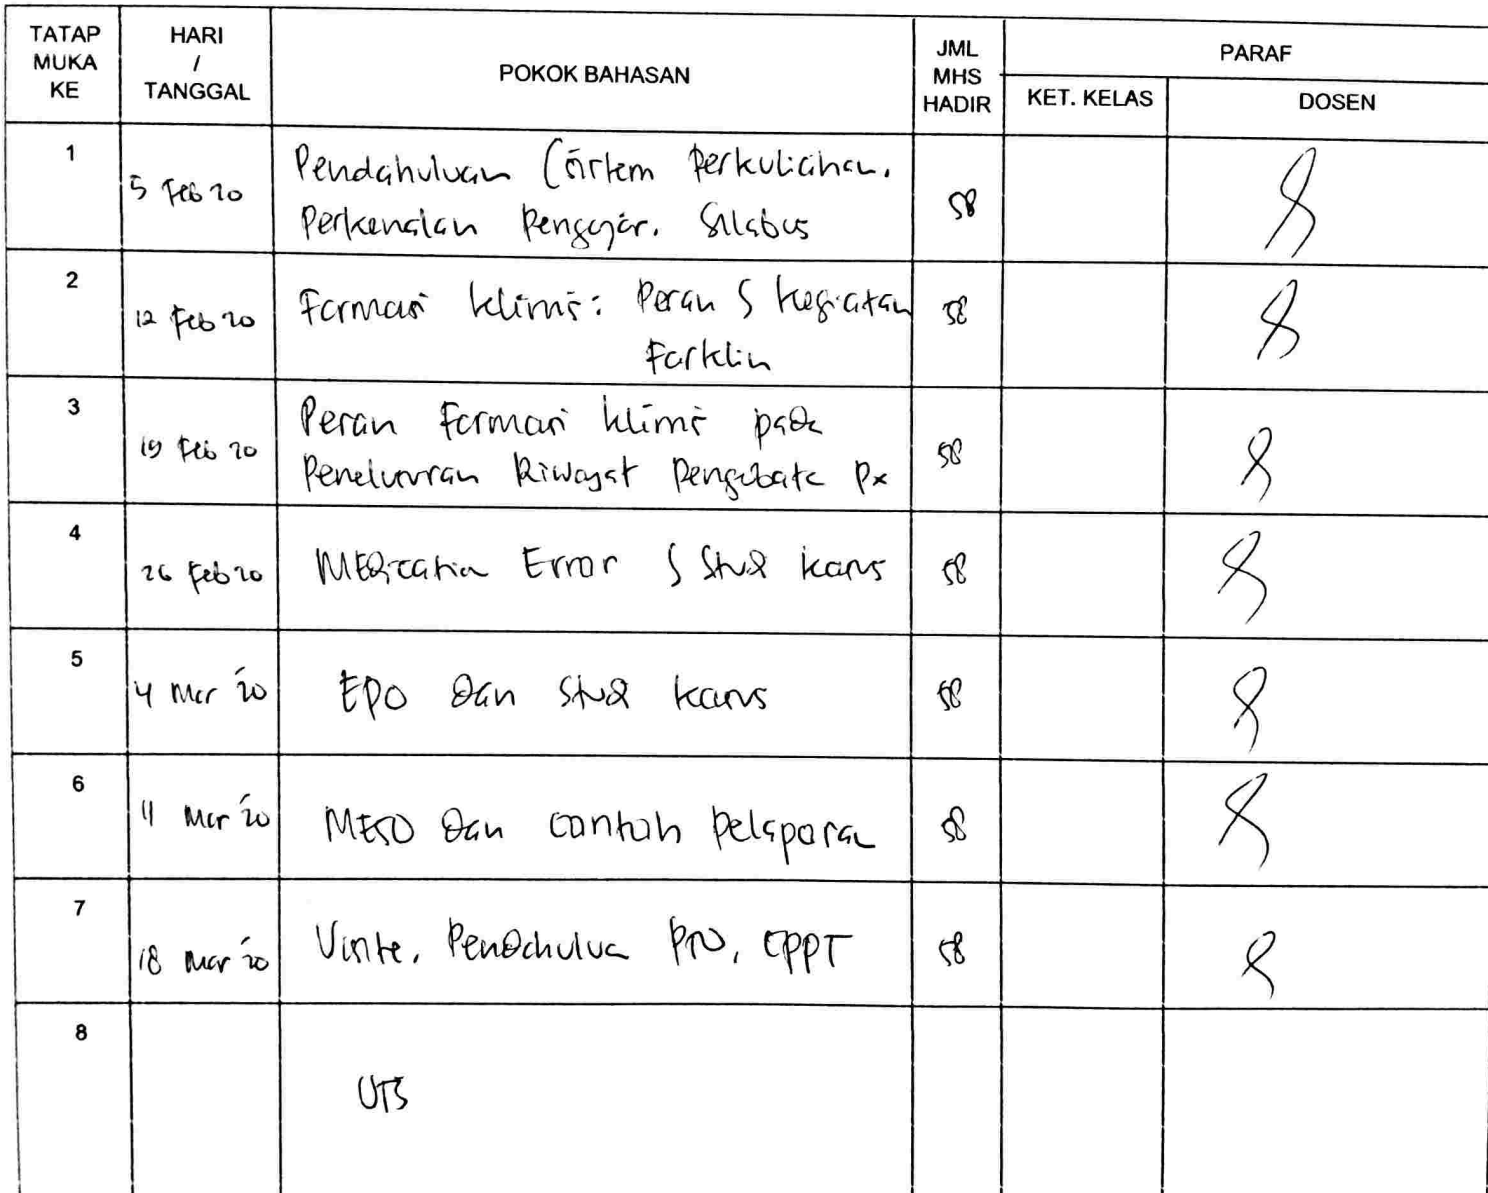 TATAP MUKA KE | HARI / TANGGAL | POKOK BAHASAN | JML MHS HADIR | PARAF
KET. KELAS | DOSEN
1 | 5 Feb 20 | Pendahuluan (Sistem Perkuliahan.
Perkenalan Pengajar. Silabus | 58
2 | 12 Feb 20 | Farmasi klinis: Peran & kegiatan
Farklin | 58
3 | 19 Feb 20 | Peran Farmasi klinis pada
Penelusuran Riwayat Pengobata Px | 58
4 | 26 Feb 20 | Medication Error & Studi kasus | 58
5 | 4 Mar '20 | EPO dan Studi kasus | 58
6 | 11 Mar '20 | MESO dan contoh pelaporan | 58
7 | 18 Mar '20 | Visite. Pendahulua PTO, CPPT | 58
8 | UTS